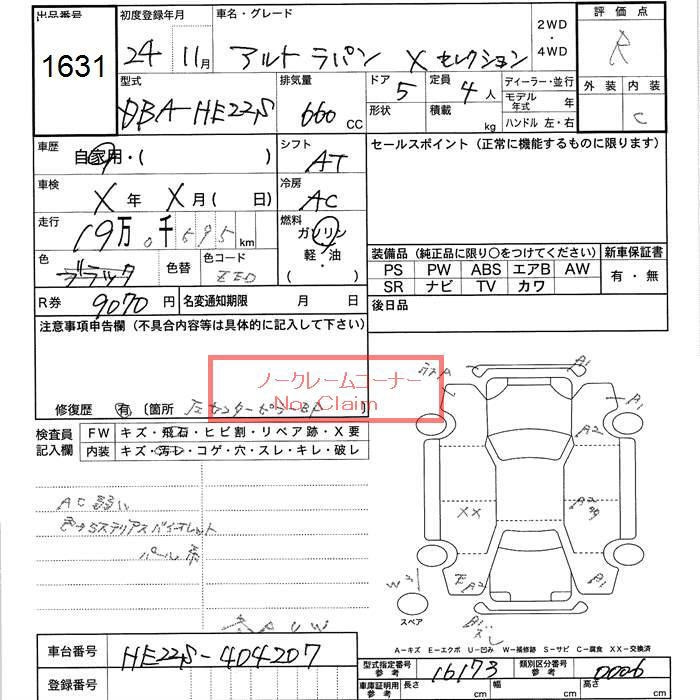 出品番号
1631
初度登録年月
24 11月
車名・グレード
アルト ラパン X セレクション
2WD
・
4WD
評価点
R
外装 内装
C
型式
DBA-HE22S
排気量
660 CC
ドア
5
形状
定員
4人
積載
kg
ディーラー・並行
モデル年式 年
ハンドル 左・右
車歴
自家用・( )
シフト
AT
セールスポイント(正常に機能するものに限ります)
車検
X年 X月( 日)
冷房
AC
走行
19万0千695km
燃料
ガソリン
軽・油
( )
色
ブラック
色替
色コード
ZED
装備品(純正品に限り○をつけてください)
新車保証書
PS PW ABS エアB AW
SR ナビ TV カワ
有・無
R券 9070円
名変通知期限 月 日
後日品
注意事項申告欄(不具合内容等は具体的に記入して下さい)
ノークレームコーナー
No Claim
修復歴 有〔箇所
検査員
記入欄
FW キズ・飛石・ヒビ割・リペア跡・X要
内装 キズ・汚レ・コゲ・穴・スレ・キレ・破レ
AC 弱い
パール系
A1
A1
A2
XX
A2
W3
A2
B1
スペア
A-キズ E-エクボ U-凹み W-補修跡 S-サビ C-腐食 XX-交換済
車台番号
HE22S-404207
登録番号
型式指定番号
参考
16173
類別区分番号
参考
0006
車庫証明用
参考
長さ cm 幅 cm 高さ cm